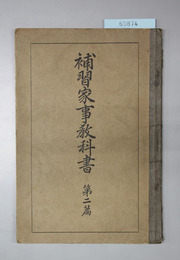 補習家事教科書 第二篇